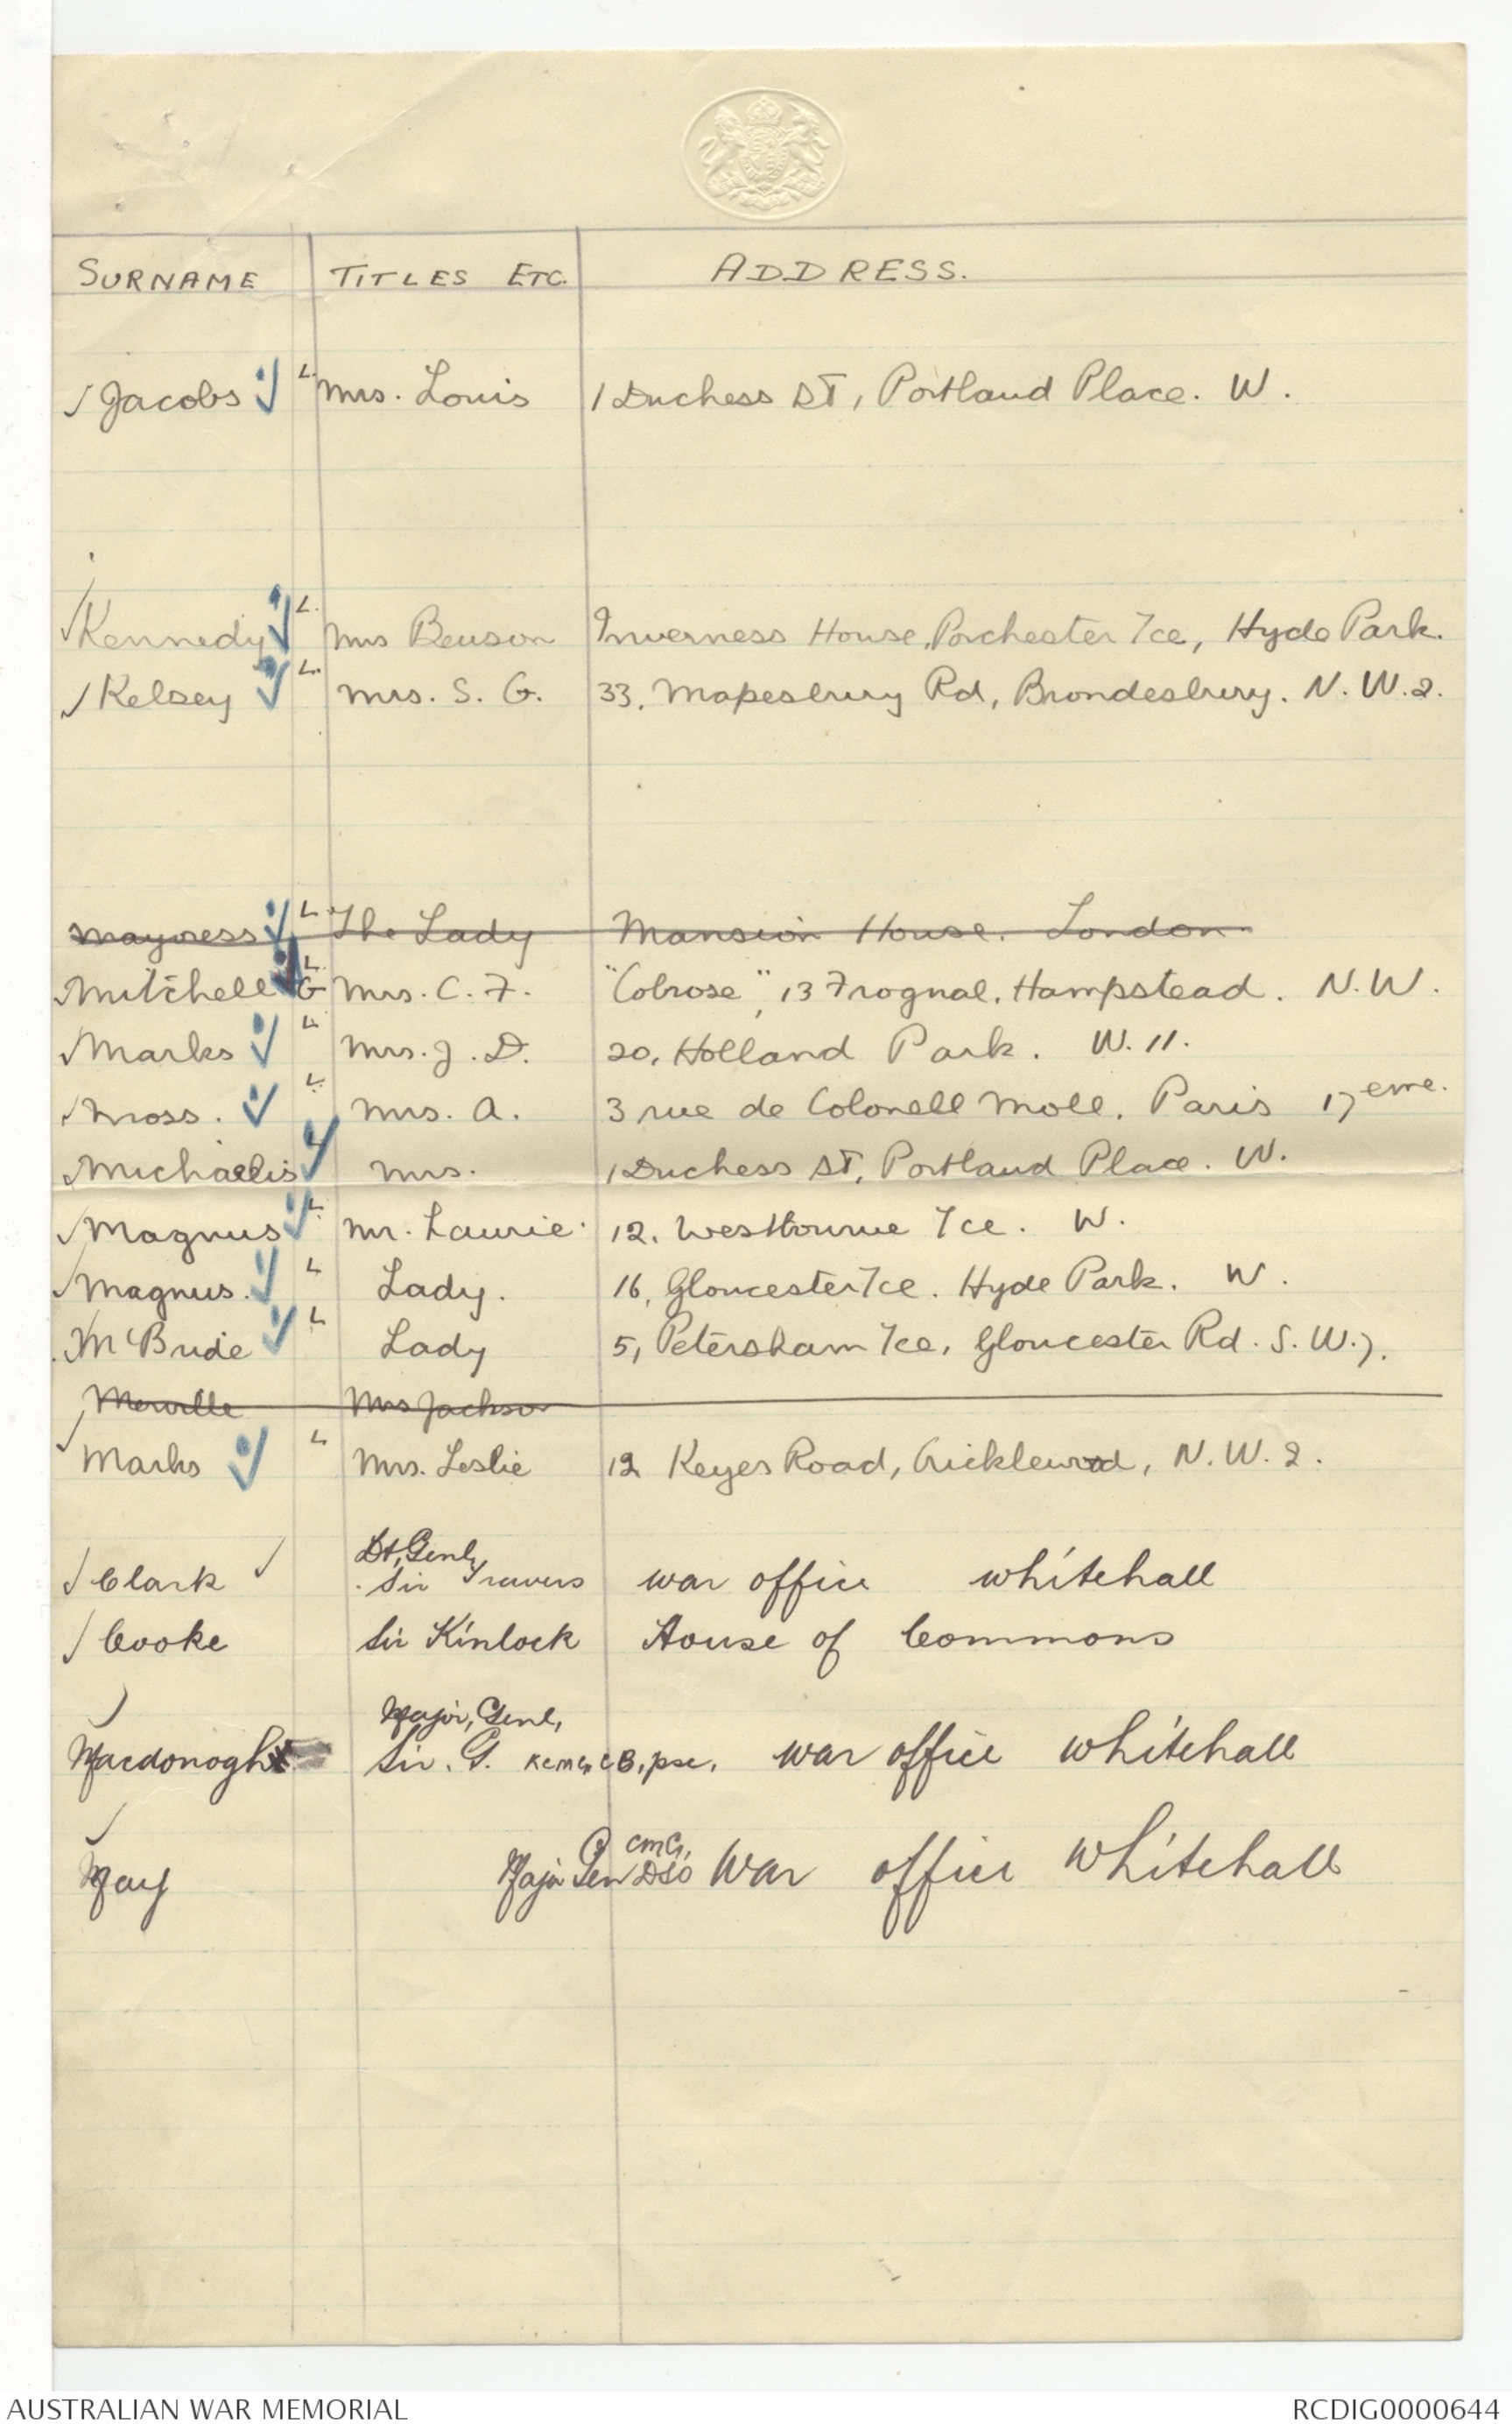 SURNAME TITLES ETC. ADDRESS.
✓ Jacobs ✓ L. Mrs. Louis 1 Duchess St, Portland Place. W.
✓ Kennedy ✓ L. Mrs Benson Inverness House, Porchester Tce, Hyde Park.
✓ Kelsey ✓ L. Mrs. S. G. 33, Mapesbury Rd, Brondesbury. N. W. 2.
Mayoress ✓ L. The Lady Mansion House. London
Mitchell L. G Mrs. C. F. "Colrose", 13 Frognal, Hampstead. N. W.
✓ Marks ✓ L. Mrs. J. D. 20, Holland Park. W. 11.
✓ Moss. ✓ L. Mrs. A. 3 rue de Colonell Moll, Paris 17 eme.
✓ Michaelis ✓ Mrs. 1 Duchess St, Portland Place. W.
✓ Magnus ✓ L. Mr. Laurie. 12, Westbourne Tce. W.
✓ Magnus. ✓ L Lady. 16, Gloucester Tce. Hyde Park. W.
McBride ✓ L Lady 5, Petersham Tce, Gloucester Rd. S. W. 7.
Merville Mrs Jackson
✓ Marks ✓ L Mrs. Leslie 12 Keyes Road, Cricklewood, N. W. 2.
Lt, Genl,
✓ Clark ✓ Sir Travers war office whitehall
✓ Cooke Sir Kinlock House of Commons
✓ Major, Genl,
Macdonogh Sir. G. KCMG, CB, psc, war office whitehall
✓ CMG,
May Major Gen DSO War office Whitehall
AUSTRALIAN WAR MEMORIAL RCDIG0000644